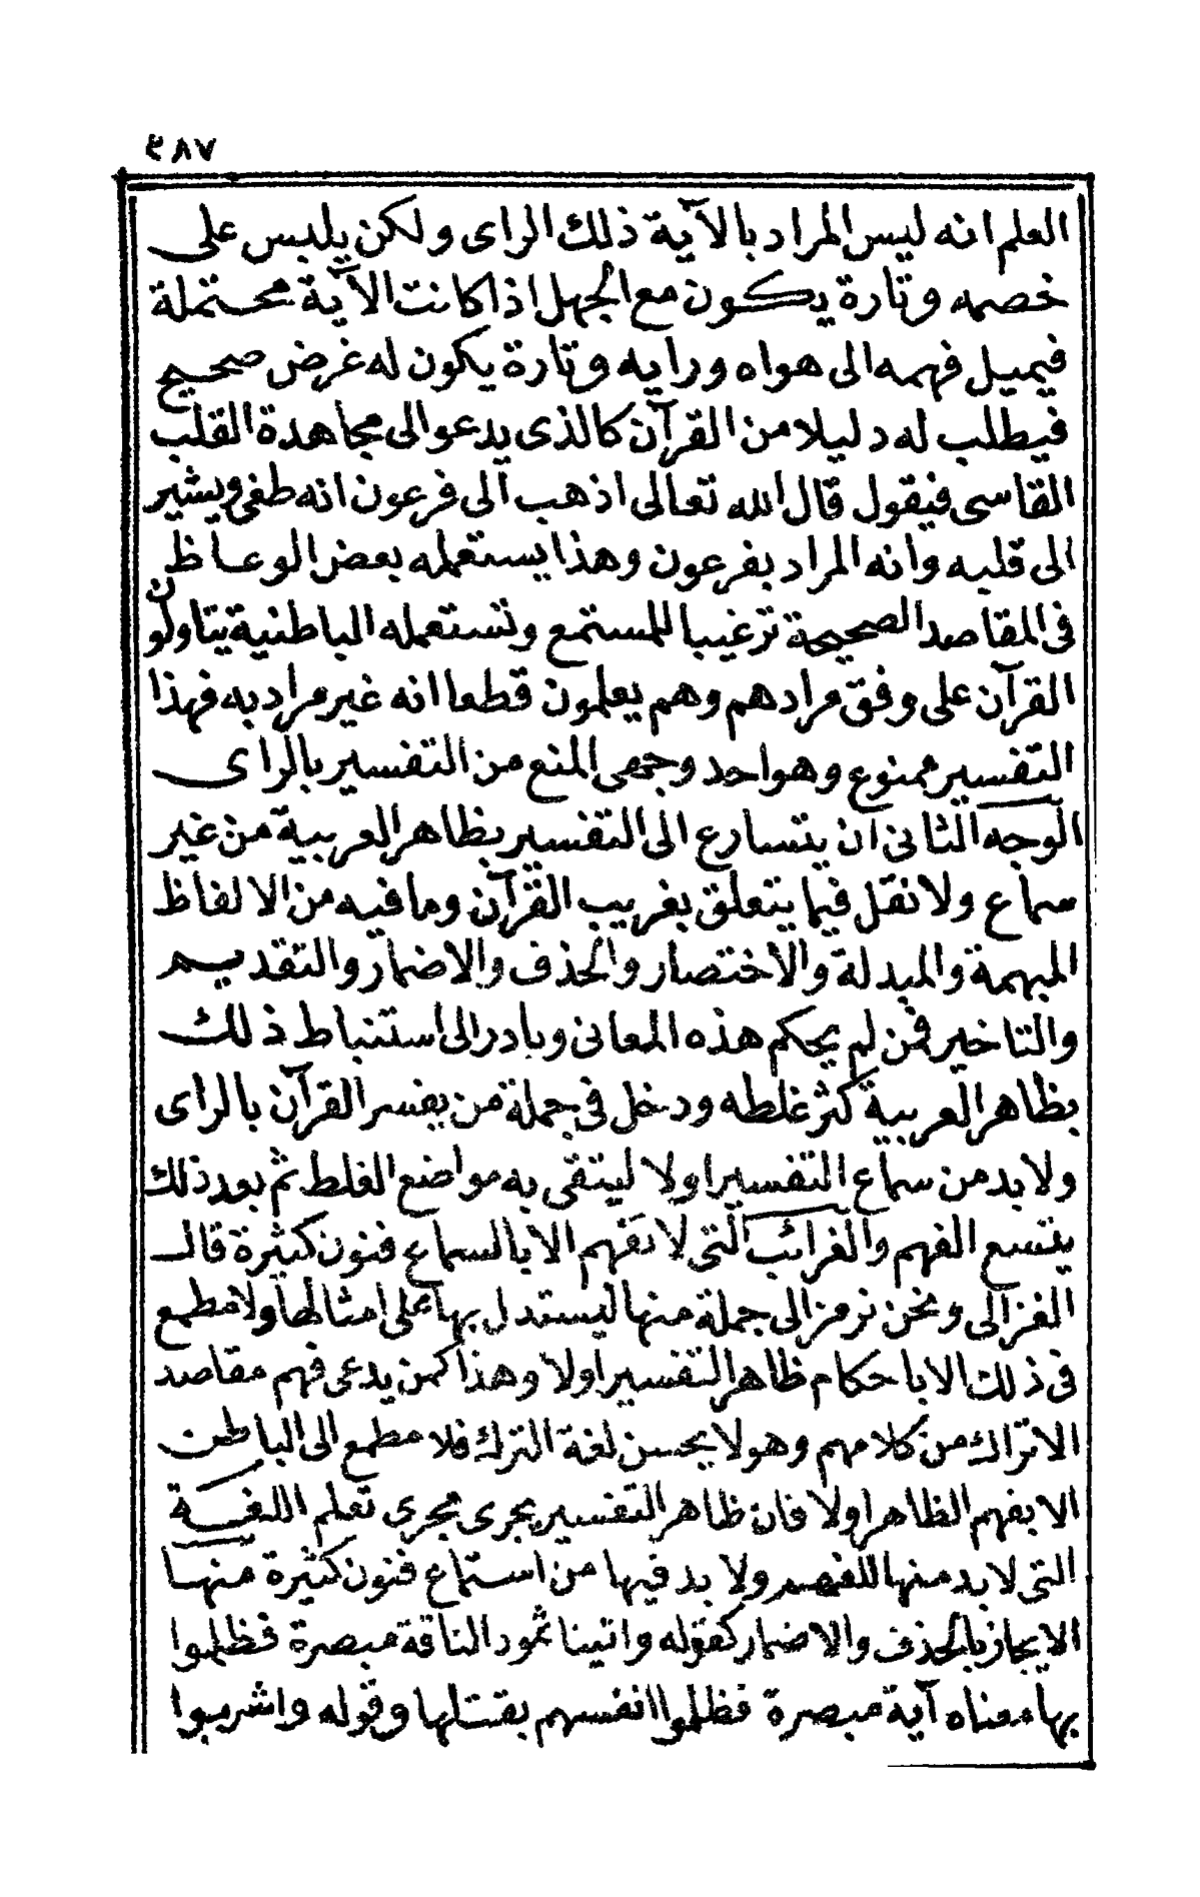 ٤٨٧
العلم انه ليس المراد بالآية ذلك الراى ولكن يلبس على
خصمه وتارة يكون مع الجهل اذا كانت الآية محتملة
فيميل فهمه الى هواه ورايه وتارة يكون له غرض صحيح
فيطلب له دليلا من القرآن كالذى يدعو الى مجاهدة القلب
القاسى فيقول قال الله تعالى اذهب الى فرعون انه طغى ويشير
الى قلبه وانه المراد بفرعون وهذا يستعمله بعض الوعاظ
فى المقاصد الصحيحة ترغيبا للمستمع وتستعمله الباطنية يتاولون
القرآن على وفق مرادهم وهم يعلمون قطعا انه غير مراد به فهذا
التفسير ممنوع وهو احد وجهى المنع من التفسير بالراى
الوجه الثانى ان يتسارع الى التفسير بظاهر العربية من غير
سماع ولا نقل فيما يتعلق بغريب القرآن وما فيه من الالفاظ
المبهمة والمبدلة والاختصار والحذف والاضمار والتقديم
والتاخير فمن لم يحكم هذه المعانى وبادر الى استنباط ذلك
بظاهر العربية كثر غلطه ودخل فى جملة من يفسر القرآن بالراى
ولا بد من سماع التفسير اولا ليتقى به مواضع الغلط ثم بعد ذلك
يتسع الفهم والغرائب التى لا تفهم الا بالسماع فنون كثيرة قال
الغزالى ونحن نرمز الى جملة منها ليستدل بها على امثالها ولا مطمع
فى ذلك الا باحكام ظاهر التفسير اولا وهذا كمن يدعى فهم مقاصد
الاتراك من كلامهم وهو لا يحسن لغة الترك فلا مطمع الى الباطن
الا بفهم الظاهر اولا فان ظاهر التفسير يجرى مجرى تعلم اللغة
التى لا بد منها للفهم ولا بد فيها من استماع فنون كثيرة منها
الايجاز بالحذف والاضمار كقوله واتينا ثمود الناقة مبصرة فظلموا
بها معناه آية مبصرة فظلموا انفسهم بقتلها وقوله واشربوا